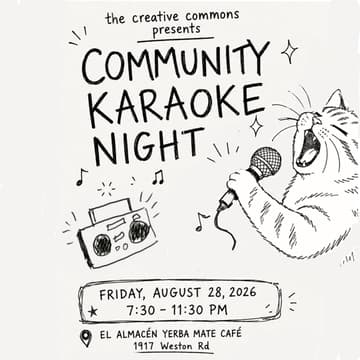 the creative commons
presents
COMMUNITY
KARAOKE
NIGHT
FRIDAY, AUGUST 28, 2026
7:30 - 11:30 PM
EL ALMACÉN YERBA MATE CAFÉ
1917 Weston Rd